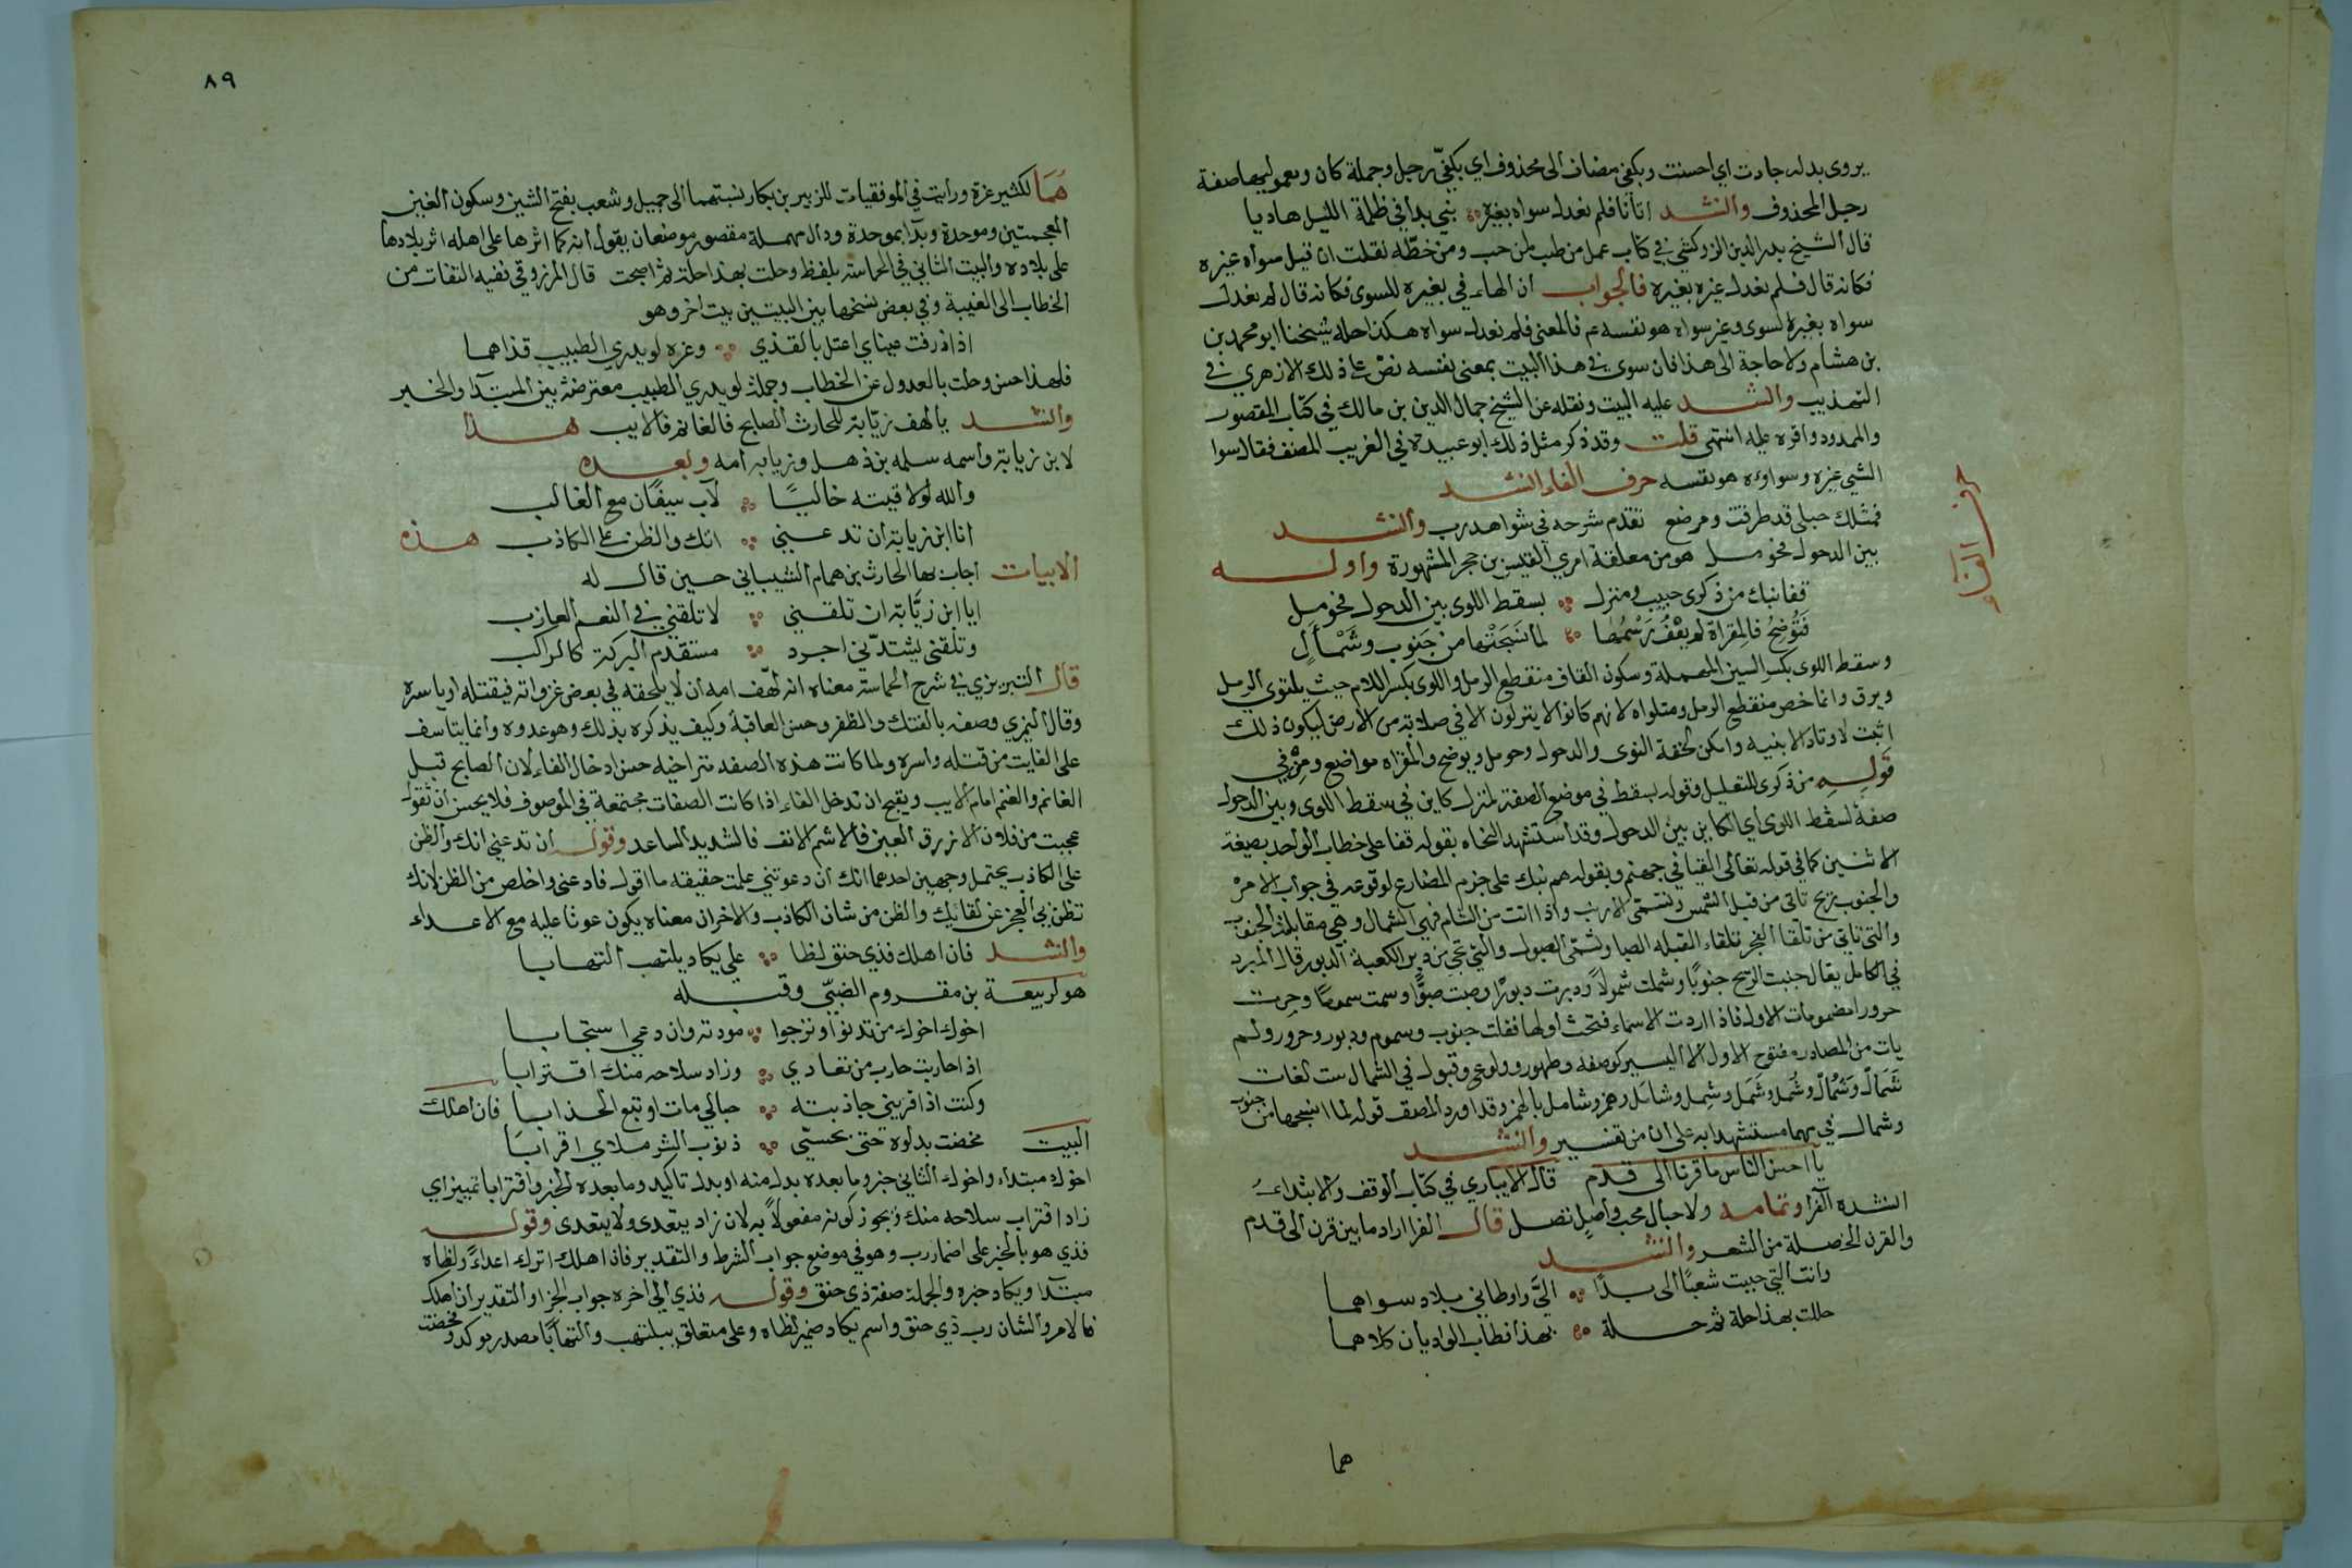 يروى بدله جادت اي احسنت وبكفي مضاف الى محذوف اي بكفيّ رجل وجملة كان ومعموليها صفة
رجل المحذوف وانشد اتانا فلم نعدل سواه بغيره نبي بدا في ظلمة الليل هاديا
قال الشيخ بدر الدين الزركشي في كتاب عمل من طب لمن حب ومن خطه نقلت ان قيل سواه غيره
فكانه قال فلم نعدل غيره بغيره فالجواب ان الهاء في بغيره للسوى فكانه قال لم نعدل
سواه بغير السوى وغير سواه هو نفسه عم فالمعنى فلم نعدل سواه هكذا حله شيخنا ابو محمد بن
بن هشام ولا حاجة الى هذا فان سوى في هذا البيت بمعنى نفسه نص على ذلك الازهري في
التهذيب وانشد عليه البيت ونقله عن الشيخ جمال الدين بن مالك في كتاب المقصور
والممدود واقره عليه انتهى قلت وقد ذكر مثل ذلك ابو عبيدة في الغريب المصنف فقال سوا
الشي غيره وسواوه هو نفسه حرف الفاء انشد
فمثلك حبلى قد طرقت ومرضع تقدم شرحه في شواهد رب وانشد
بين الدخول فحومل هو من معلقة امرئ القيس بن حجر المشهورة واوله
قفا نبك من ذكرى حبيب ومنزل بسقط اللوى بين الدخول فحومل
فَتُوضِحُ فالمِقراةِ لم يعْفُ رَسْمُها لما نَسَجَتْها من جَنوب وشَمْأَلِ
وسقط اللوى بكسر السين المهملة وسكون القاف منقطع الرمل واللوى بكسر اللام حيث يلتوي الرمل
ويرق وانما خص منقطع الرمل وملتواه لانهم كانوا لا ينزلون الا في صلابة من الارض ليكون ذلك
اثبت لاوتاد الابنيه وامكن لحفة النوى والدخول وحومل وتوضح والمقراه مواضع ومِنْ في
قوله من ذكرى للتعليل وقوله بسقط في موضع الصفة لمنزل كاين في سقط اللوى وبين الدخول
صفة لسقط اللوى اي الكاين بين الدخول وقد استشهد النحاه بقوله قفا على خطاب الواحد بصيغة
الاثنين كما في قوله تعالى القيا في جهنم وبقوله هم نبك على جزم المضارع لوقوعه في جواب الامر
والجنوب ريح تاتي من قبل الشمس وتسمى الازيب واذا اتت من الشام فهي الشمال وهي مقابلة الجنوب
والتي تاتي من تلقا الفجر تلقاء القبله الصبا وتسمى القبول والتي تجي من دبر الكعبة الدبور قال المبرد
في الكامل يقال جنبت الريح جنوبًا وشملت شمولاً ودبرت دبورًا وصبت صبوًّا وسمت سمومًا وحرت
حرورا مضمومات الاول فاذا اردت الاسماء فتحت اولها فقلت جنوب وسموم ودبور وحرور ولم
يات من المصادر مفتوح الاول الا اليسير كوصفه وطهور وولوع وقبول في الشمال ست لغات
شَمَال وشَمْأل وشُمل وشَمَل وشمل وشائل رهمز وشامل بالهمز وقد اورد المصنف قوله لما انسجها من جنوب
وشمال في مهما مستشهدا به على ان من تفسير وانشد
يا احسن الناس ما قرنا الى قدم قال الانباري في كتاب الوقف والابتداء
انشده الفرا وتمامه ولا حبال محب واصل تصل قال الفرا اراد ما بين قرن الى قدم
والقرن الخصلة من الشعر وانشد
وانت التي حببت شعبًا الى بدًا اليَّ واوطاني بلاد سواهما
حللت بهذا حلة ثم حلة بهذا فطاب الواديان كلاهما
هما
حرف الفاء
٨٩
هُمَا لكثير عزة ورايت في الموفقيات للزبير بن بكار نسبتهما الى جميل وشعب بفتح الشين وسكون الغين
المعجمتين وموحدة وبدا بموحدة ودال مهملة مقصور موضعان يقول انه كما اثرها على اهله اثر بلادها
على بلاده والبيت الثاني في الحماسة بلفظ وحلت بهذا حلة ثم اصبحت قال المرزوقي نفيه التفات من
الخطاب الى الغيبة وفي بعض نسخها بين البيتين بيت اخر وهو
اذا ذرفت عيناي اعتل بالقذي وعزه لو يدري الطبيب قذاهما
فلهذا حسن وحلت بالعدول عن الخطاب وجملة لو يدري الطبيب معترضة بين المبتدا والخبر
وانشد يا لهف زيّابة للحارث الصابح فالغانم فالايب هذا
لابن زيابة واسمه سلمه بن ذهل وزيابه امه وبعده
والله لو لاقيته خاليًا لآب سيفان مع الغالب
انا ابن زيابة ان تدعني اتك والظن على الكاذب هذه
الابيات اجاب بها الحارث بن همام الشيباني حين قال له
ايا ابن زيَّابة ان تلقني لا تلقني في النعم العازب
وتلقني يشتدّ بي اجرد مستقدم البركة كالراكب
قال التبريزي في شرح الحماسة معناه انه لهّف امه ان لا يلحقه في بعض غزواته فيقتله او ياسره
وقال النمري وصفه بالفتك والظفر وحسن العاقبة وكيف يذكره بذلك وهو عدوه وانما يتاسف
على الفايت من قتله واسره ولما كانت هذه الصفه متراخيه حسن ادخال الفاء لان الصابح قبل
الغانم والغنم امام الايب ويقبح ان تدخل الفاء اذا كانت الصفات مجتمعة في الموصوف فلا يحسن ان تقول
عجبت من فلان الازرق العين فالاشم الانف فالشديد الساعد وقوله ان تدعني اتك والظن
على الكاذب يحتمل وجهين احدهما انك ان دعوتني علمت حقيقة ما اقول فادعني واخلص من الظن لانك
تظن بي العجز عن لقايك والظن من شان الكاذب والاخر ان معناه يكون عونا عليه مع الاعداء
وانشد فان اهلك فذي حنق لظا علي يكاد يلتهب التهابا
هو لربيعة بن مقروم الضبيّ وقبله
اخوك اخوك من تدنو او ترجوا مودته وان دعي استجابا
اذا حاربت حارب من تعادي وزاد سلاحه منك اقترابا
وكنت اذا قريني جاذبته حبالي مات او تبع الجذابا فان اهلك
البيت مخضت بدلوه حتى تحسّي ذنوب الشر ملاي اقرابًا
اخوك مبتداء واخوك الثاني خبر وما بعده بدل منه او بدل تاكيد وما بعده الخبر واقترابا تمييز اي
زاد اقتراب سلاحه منك ويجوز كونه مفعولاً به لان زاد يتعدى ولا يتعدى وقوله
فذي هو بالجر على اضمار رب وهو في موضع جواب الشرط والتقدير فان اهلك اترك اعداءً ولظاه
مبتدا ويكاد خبره والجملة صفة ذي حنق وقوله فذي الى اخره جواب الجزا والتقدير ان اهلك
فالامر والشان رب ذي حنق واسم يكاد ضمير لظاه وعلى متعلق بيلتهب والتهابًا مصدر موكد ومخضت